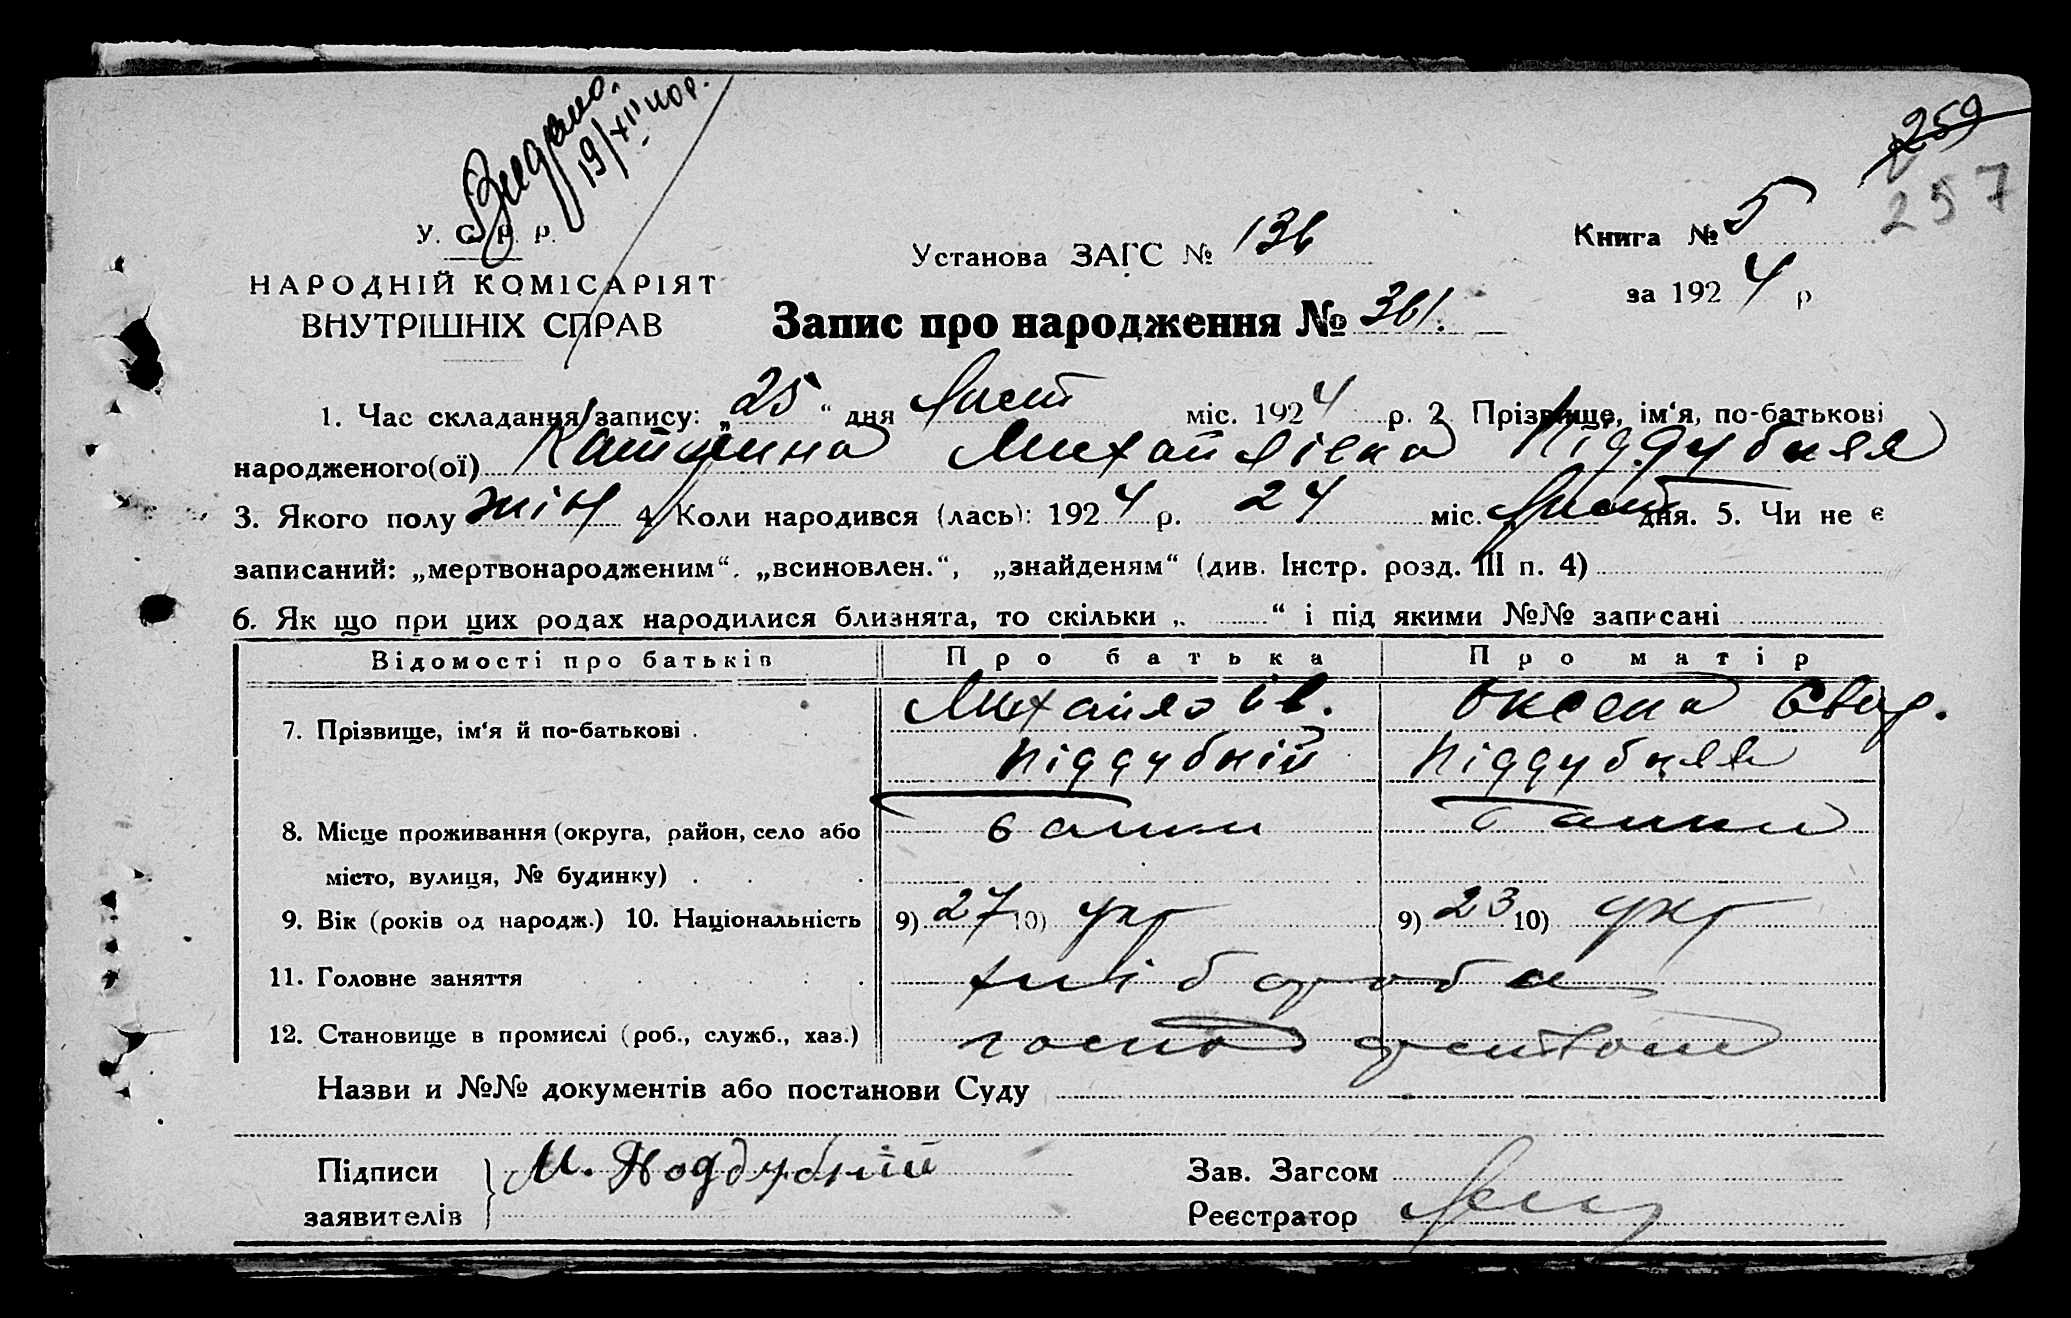 Видано.
19/XII 40 р.
259
257
У. С. Р. Р.
НАРОДНІЙ КОМІСАРІЯТ
ВНУТРІШНІХ СПРАВ
Установа ЗАГС № 136
Книга № 5
за 1924 р
Запис про народження № 361.
1. Час складання запису: „25“ дня Лист міс. 1924 р. 2 Прізвище, ім‘я, по-батькові
народженого(ої) Катерина Михайлівна Піддубняя
3. Якого полу жін 4. Коли народився (лась): 1924 р. 24 міс. Лист дня. 5. Чи не є
записаний: „мертвонародженим“, „всиновлен.“, „знайденям“ (див. Інстр. розд. III п. 4)
6. Як що при цих родах народилися близнята, то скільки „ “ і під якими №№ записані
Відомості про батьків Про батька Про матір
7. Прізвище, ім‘я й по-батькові . Михайло Ів. Оксена Евдр.
Піддубній Піддубняя
8. Місце проживання (округа, район, село або
місто, вулиця, № будинку) . . .
9. Вік (років од народж.) 10. Національність 9) 27 10) укр 9) 23 10) укр
11. Головне заняття хліборобa
12. Становище в промислі (роб., служб., хаз.) господ
Назви и №№ документів або постанови Суду
Підписи М. Поддубний Зав. Загсом
заявителів Реєстратор